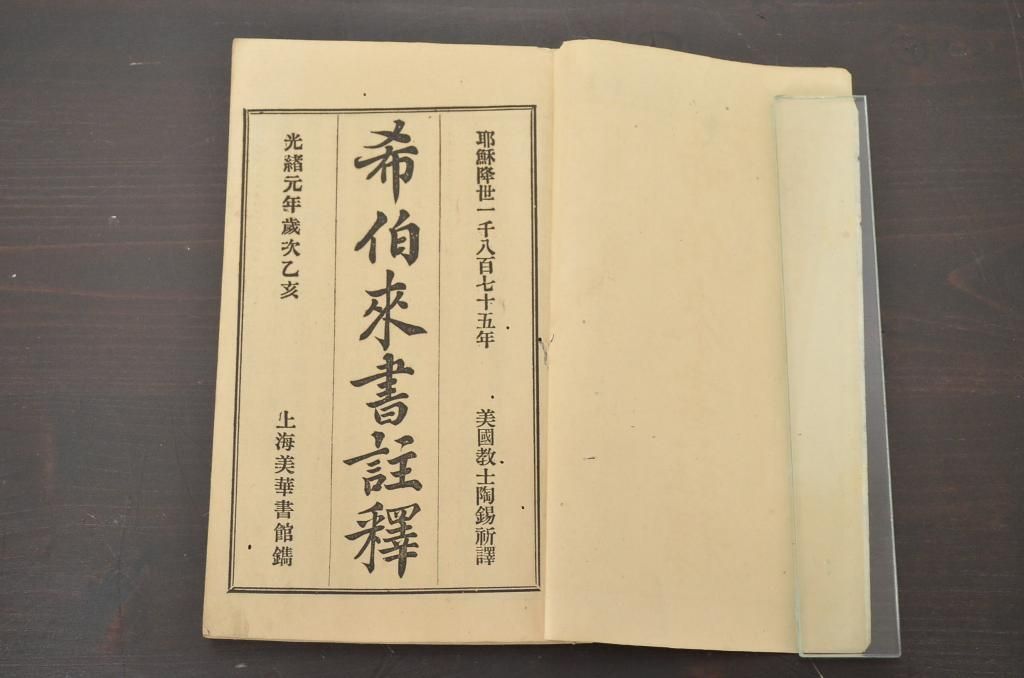 耶穌降世一千八百七十五年
美國教士陶錫祈譯
希伯來書註釋
光緒元年歲次乙亥
上海美華書館鐫